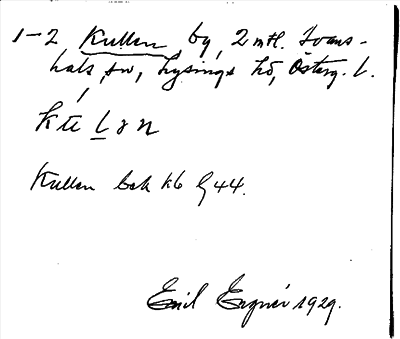 1-2 Kullen, by, 2 mtl. Svans-
hals sn, Lysings hd, Österg. l.
kúlɘn
Kullen bek Kb § 44.
Emil Ergner 1929.